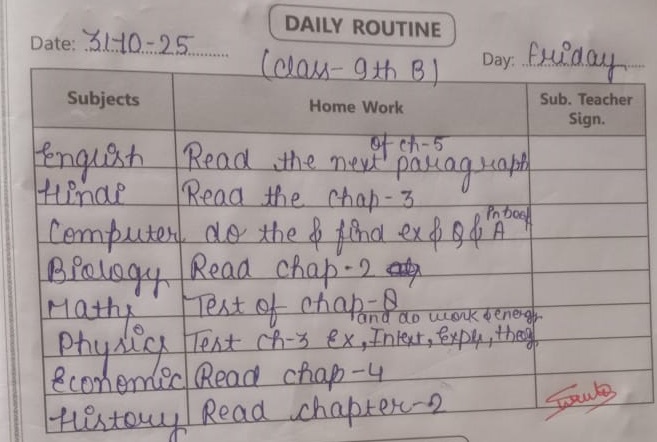 DAILY ROUTINE
Date: 31-10-25
(Class- 9th B)
Day: Friday
Subjects Home Work Sub. Teacher Sign.
English Read the next paragraph of ch-5
Hindi Read the chap-3
Computer do the & find ex & Q & A in book
Biology Read chap-2
Maths Test of chap-8
Physics Test ch-3 Ex, Intext, Exple, and do work & energy
Economic Read chap-4
History Read chapter-2
DAILY ROUTINE